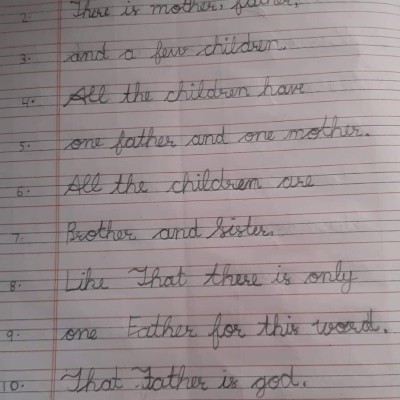 2. There is mother, father,
3. and a few children.
4. All the children have
5. one father and one mother.
6. All the children are
7. Brother and Sister.
8. Like That there is only
9. one Father for this word.
10. That Father is god.